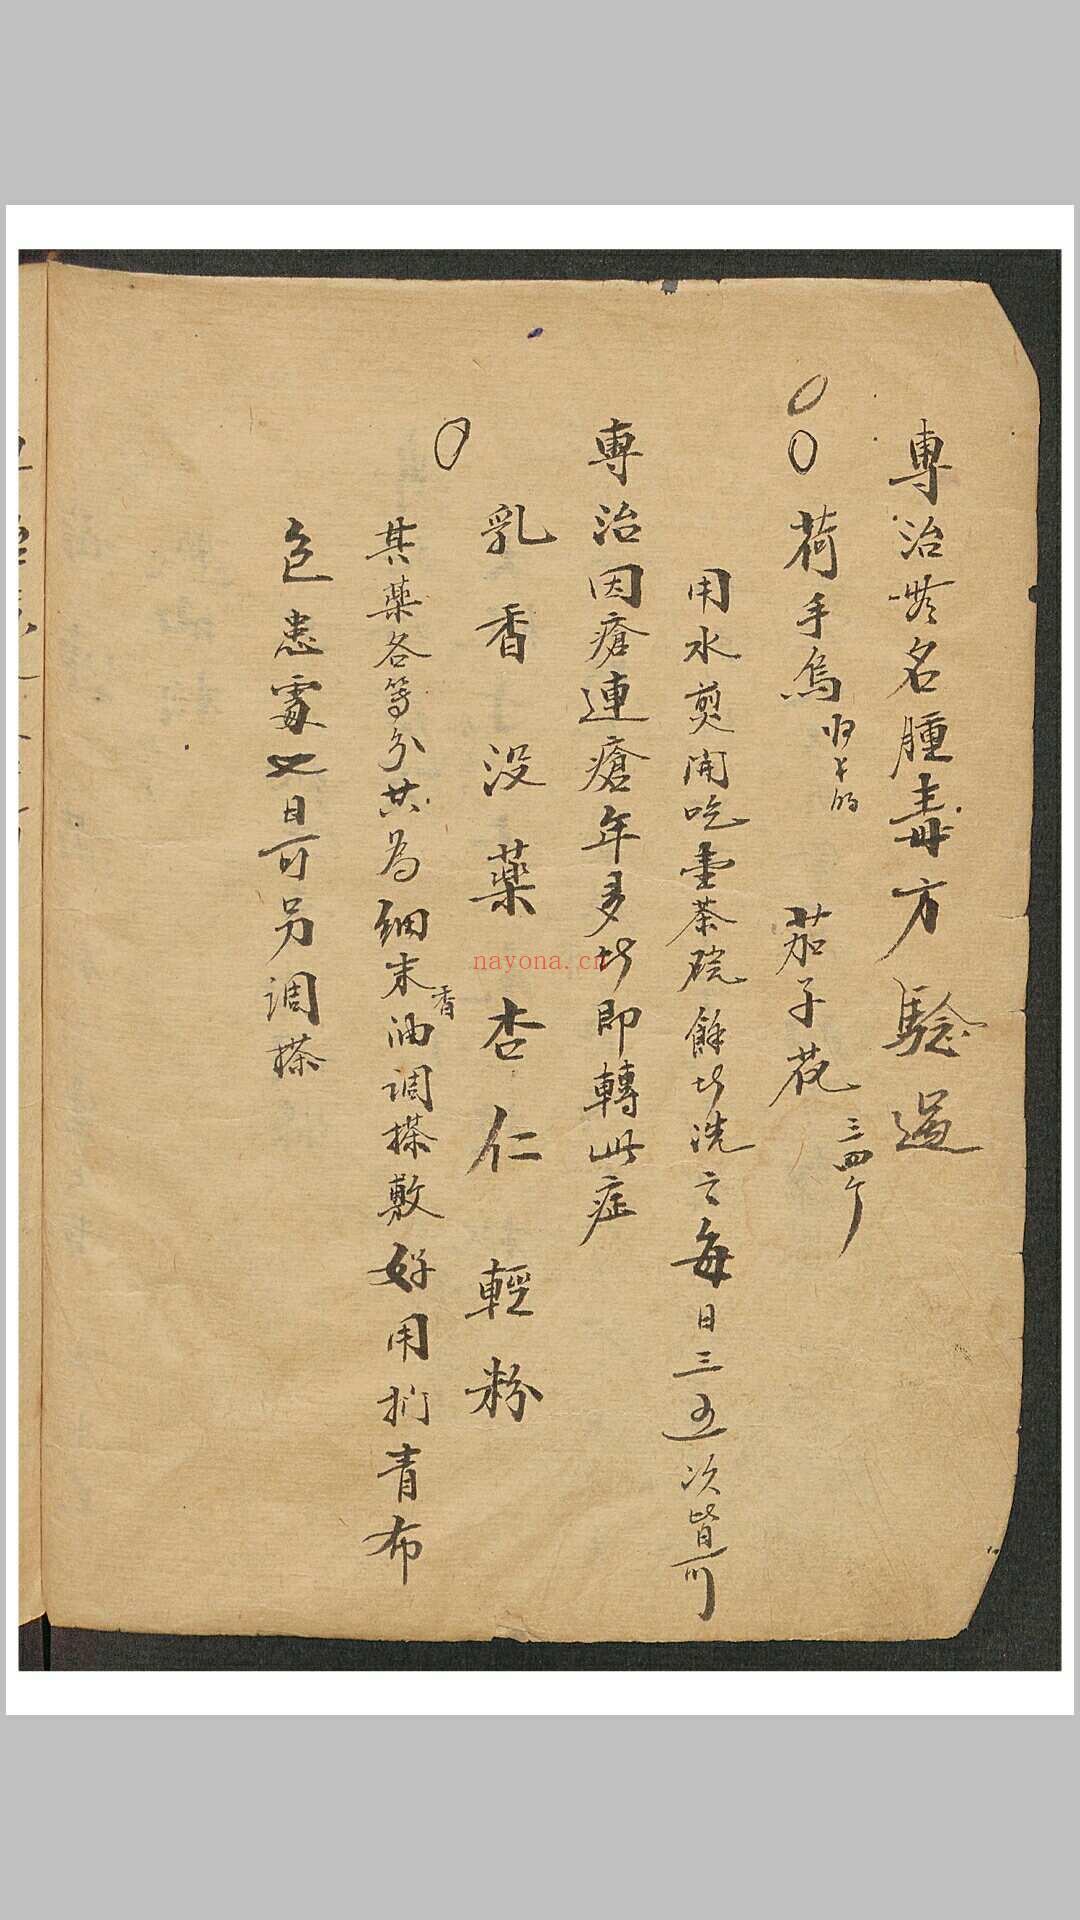 專治無名腫毒方驗過
荷手烏 茄子花 三四个
用水煎開吃壹茶碗餘的洗之每日三五次皆可
專治因瘡連瘡年多的即轉此症
乳香没藥杏仁輕粉
其藥各等分共為细末香油调搽敷好用捫青布
色患處 日可另调搽
nayona.cn